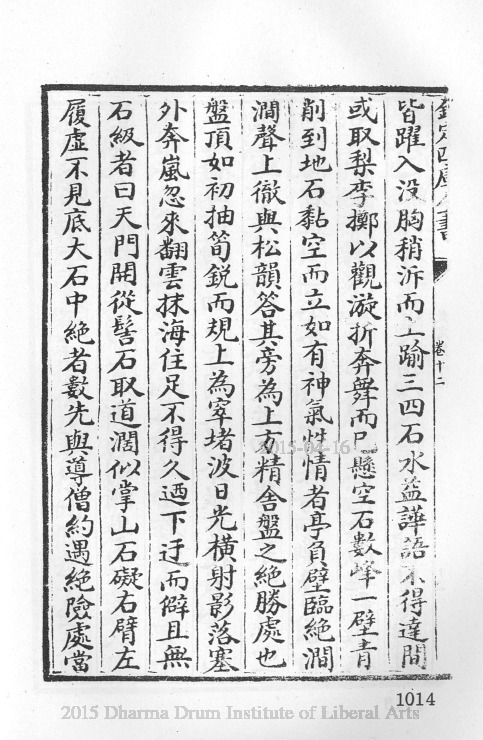 欽定四庫全書
卷十二
皆躍入没胸稍泝而上踰三四石水益譁語不得達間
或取梨李擲以觀漩折奔舞而已懸空石數峰一壁青
削到地石黏空而立如有神氣性情者亭負壁臨絶澗
澗聲上徹與松韻答其旁為上方精舍盤之絶勝處也
盤頂如初抽筍鋭而規上為窣堵波日光横射影落塞
外奔嵐忽來翻雲抹海住足不得久迺下迂而僻且無
石級者曰天門開從髻石取道濶似掌山石礙右臂左
履虚不見底大石中絶者數先與導僧約遇絶險處當
2015-04-16
1014
2015 Dharma Drum Institute of Liberal Arts